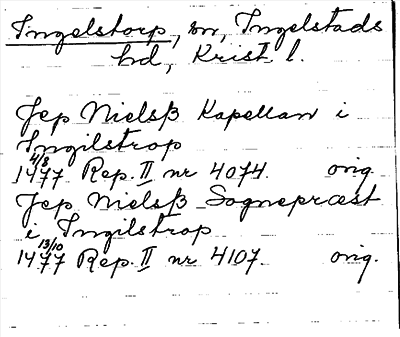 Ingelstorp, sn, Ingelstads
hd, Krist. l.
Jep Nielsß Kapellan i
Ingilstrop
14 4/8 77 Rep. II nr 4074. orig.
Jep Nielsß Sognepræst
i Ingilstrop
14 13/10 77 Rep. II nr 4107. orig.